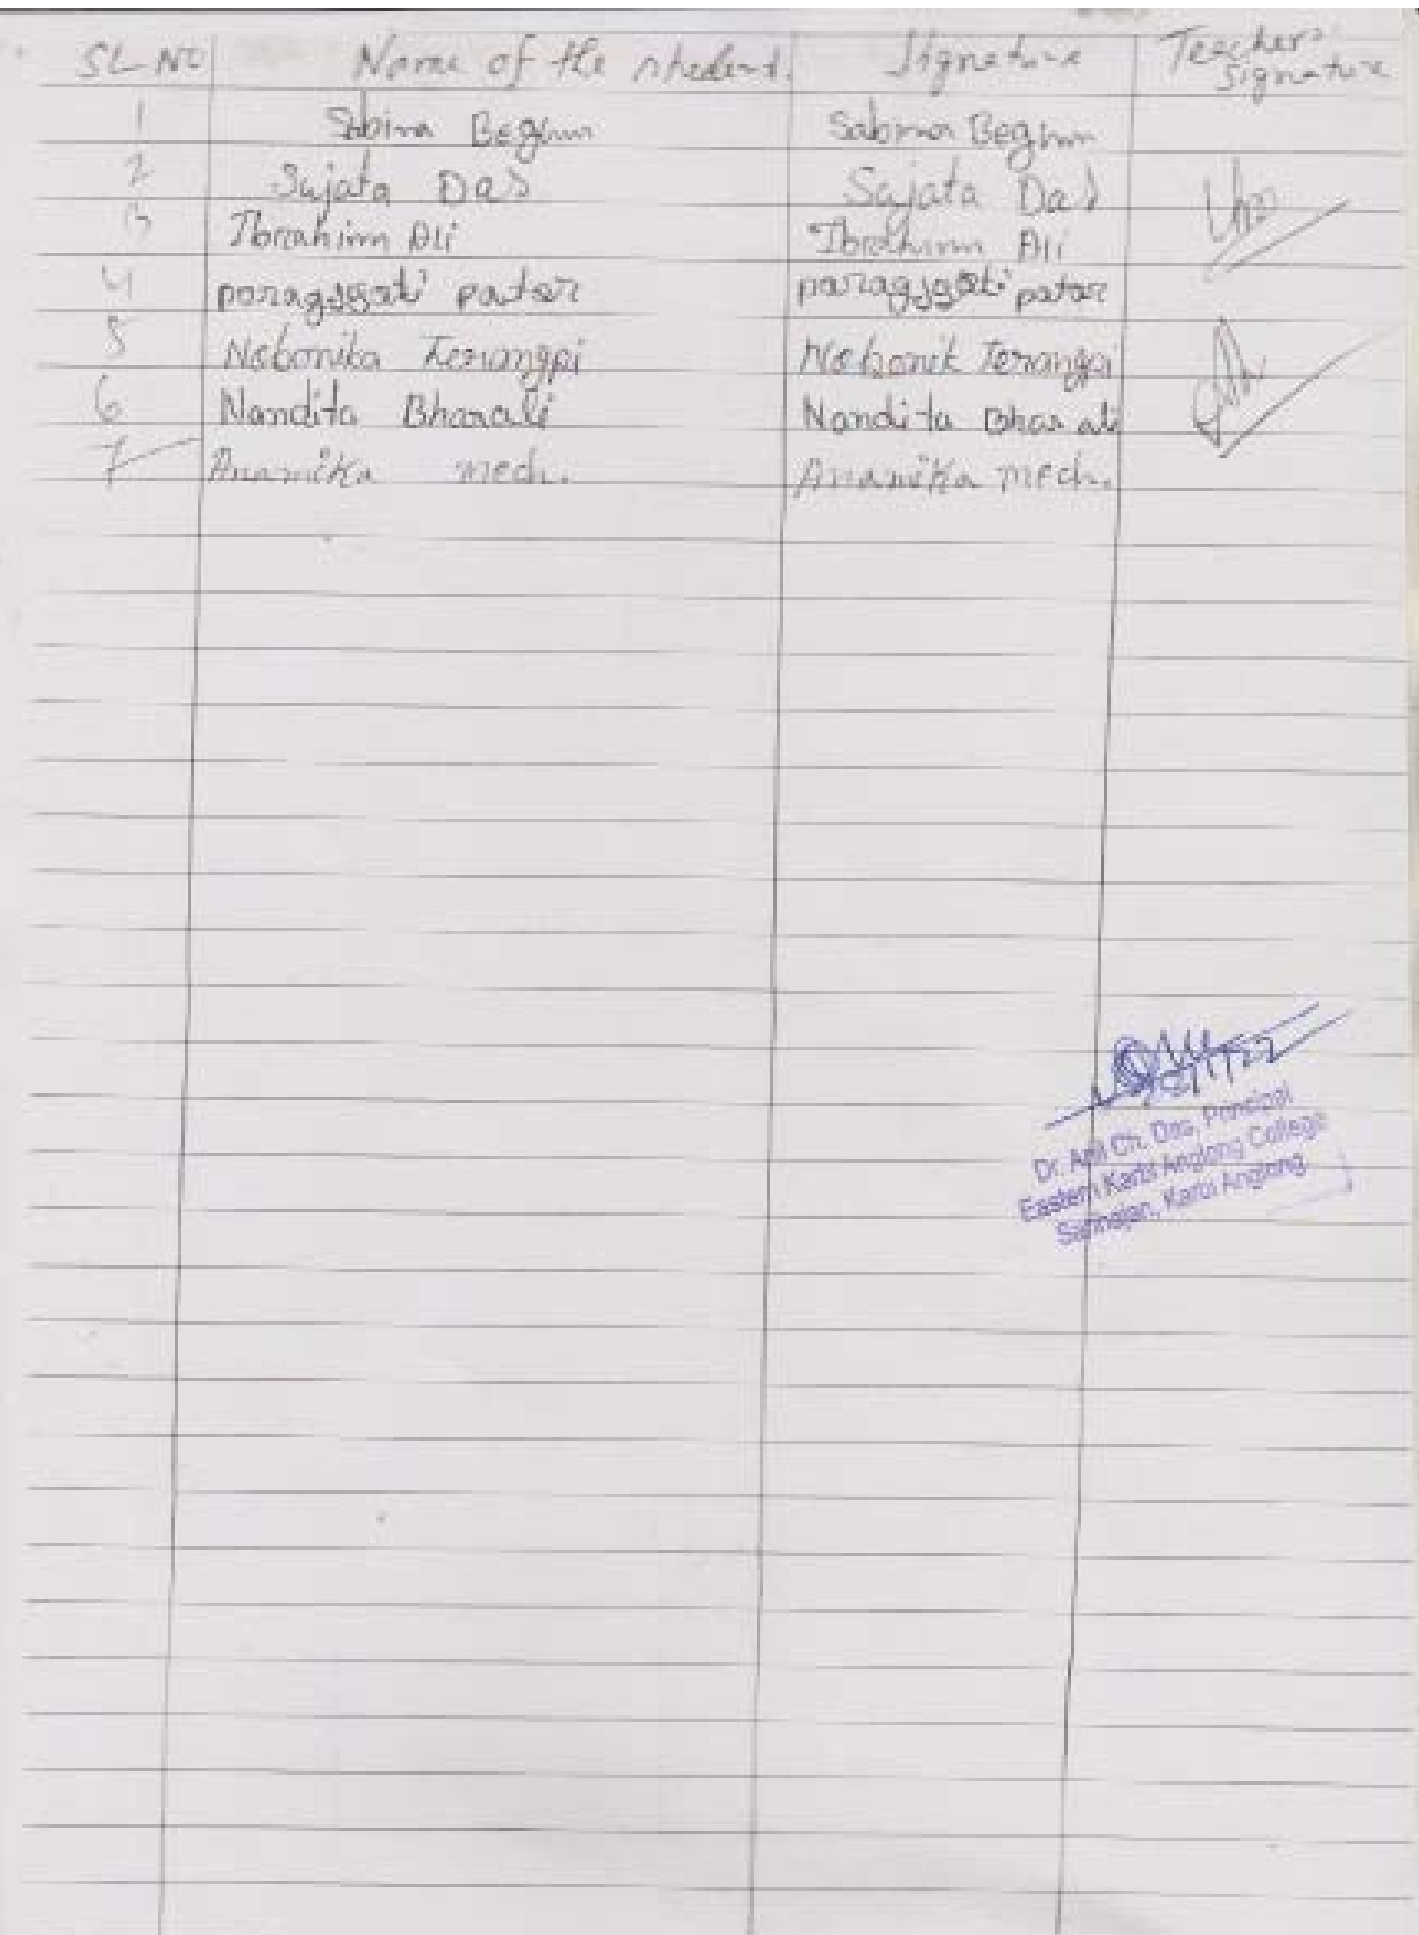 SL-NO Name of the student. Signature Teacher's Signature
1 Sabina Begum Sabina Begum
2 Sujata Das Sujata Das
3 Ibrahim Ali Ibrahim Ali
4 paragjyoti patar paragjyoti patar
5 Nebonika Terangpi Nebonik Terangpi
6 Nandita Bharali Nandita Bharali
7 Anamika mech. Anamika mech.
Dr. Anil Ch. Das, Principal
Eastern Karbi Anglong College
Sarihajan, Karbi Anglong